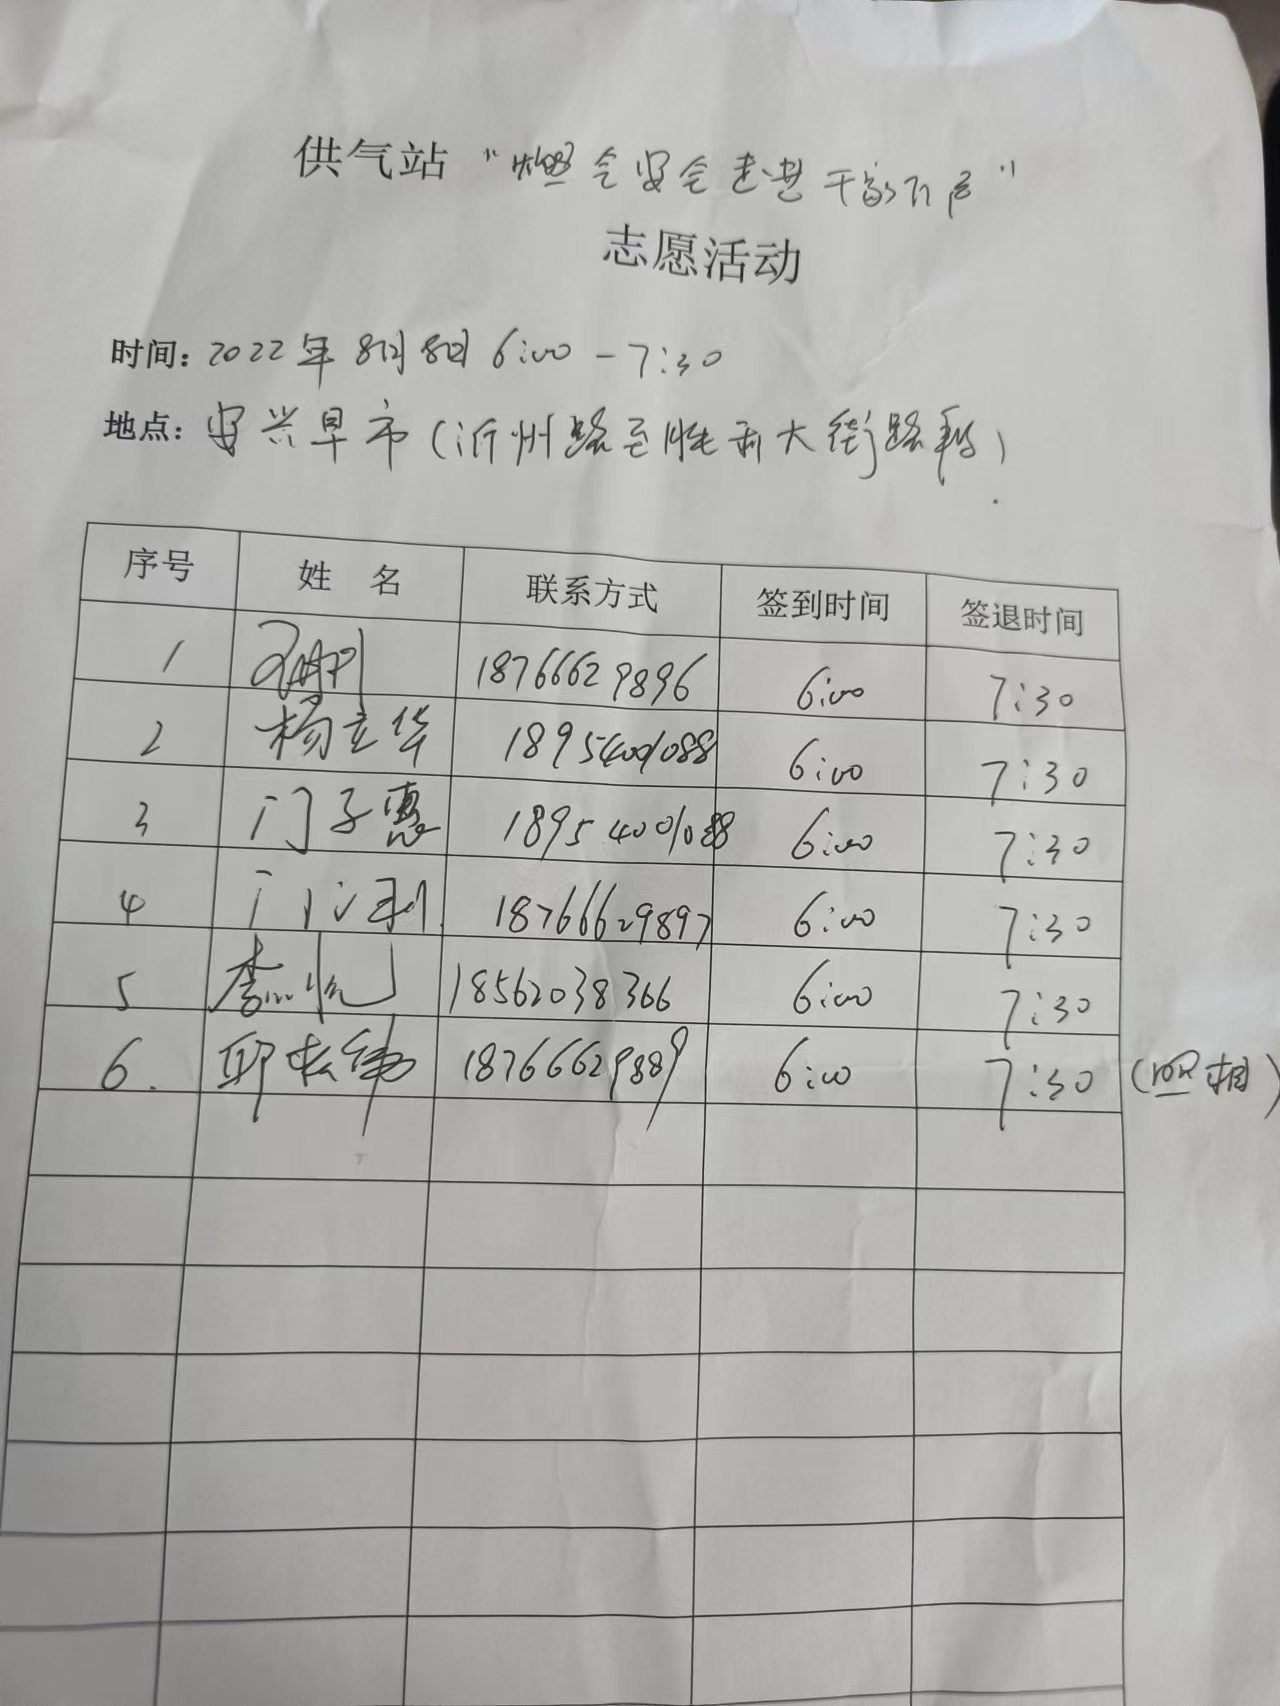 供气站 “燃气安全走进千家万户”
志愿活动
时间: 2022年8月8日 6:00-7:30
地点: 安兴早市(沂州路至胜利大街路段)
序号 姓 名 联系方式 签到时间 签退时间
1 18766629896 6:00 7:30
2 杨立华 18954001088 6:00 7:30
3 门子惠 18954001088 6:00 7:30
4 18766629897 6:00 7:30
5 18562038366 6:00 7:30
6. 18766629889 6:00 7:30 (照相)